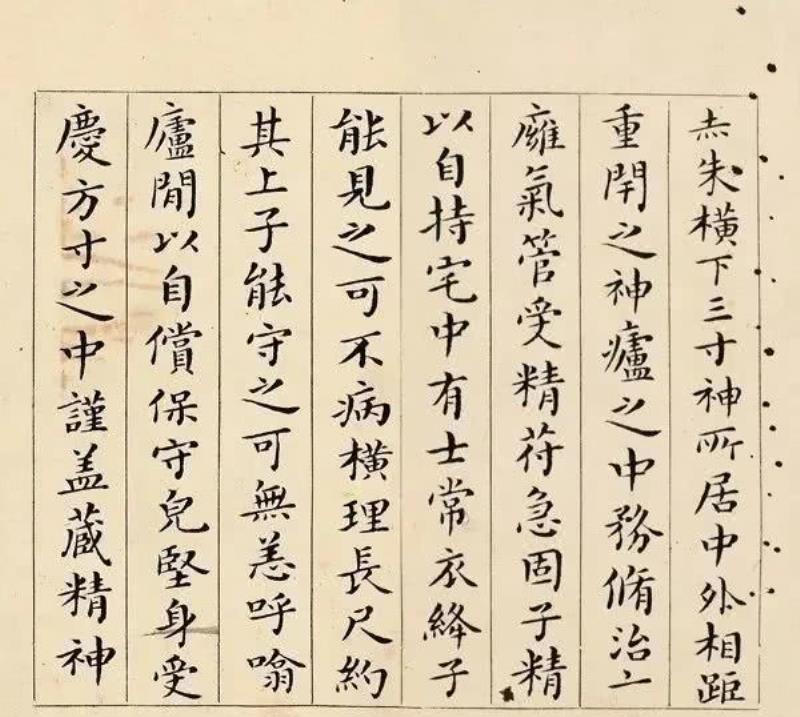 灬朱橫下三寸神所居中外相距
重閇之神癰之中務脩治亠
癕氣管受精苻急固子精
以自持宅中有士常衣絳子
能見之可不病橫理長尺約
其上子能守之可無恙呼噏
廬閒以自償保守皃堅身受
慶方寸之中謹盖藏精神